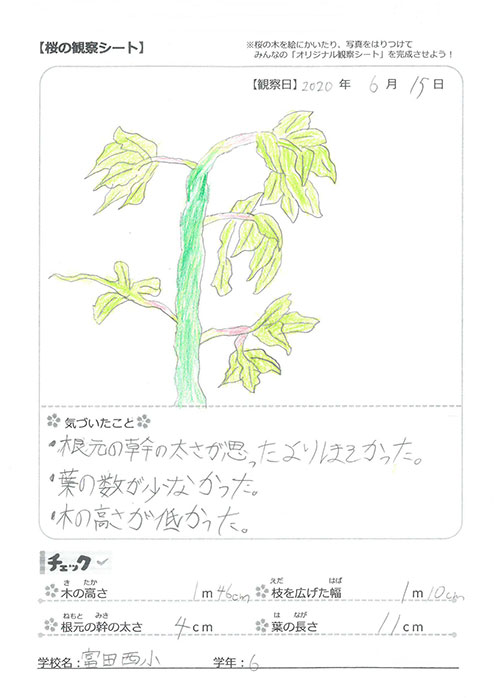 【桜の観察シート】
※桜の木を絵にかいたり、写真をはりつけて
みんなの「オリジナル観察シート」を完成させよう！
【観察日】2020 年 6 月 15 日
気づいたこと
・根元の幹の太さが思ったよりほそかった。
・葉の数が少なかった。
・木の高さが低かった。
チェック
き たか えだ ひろ はば
木の高さ 1 m 46cm 枝を広げた幅 1 m 10cm
ねもと みき は なが
根元の幹の太さ 4 cm 葉の長さ 11 cm
学校名：富田西小 学年：6